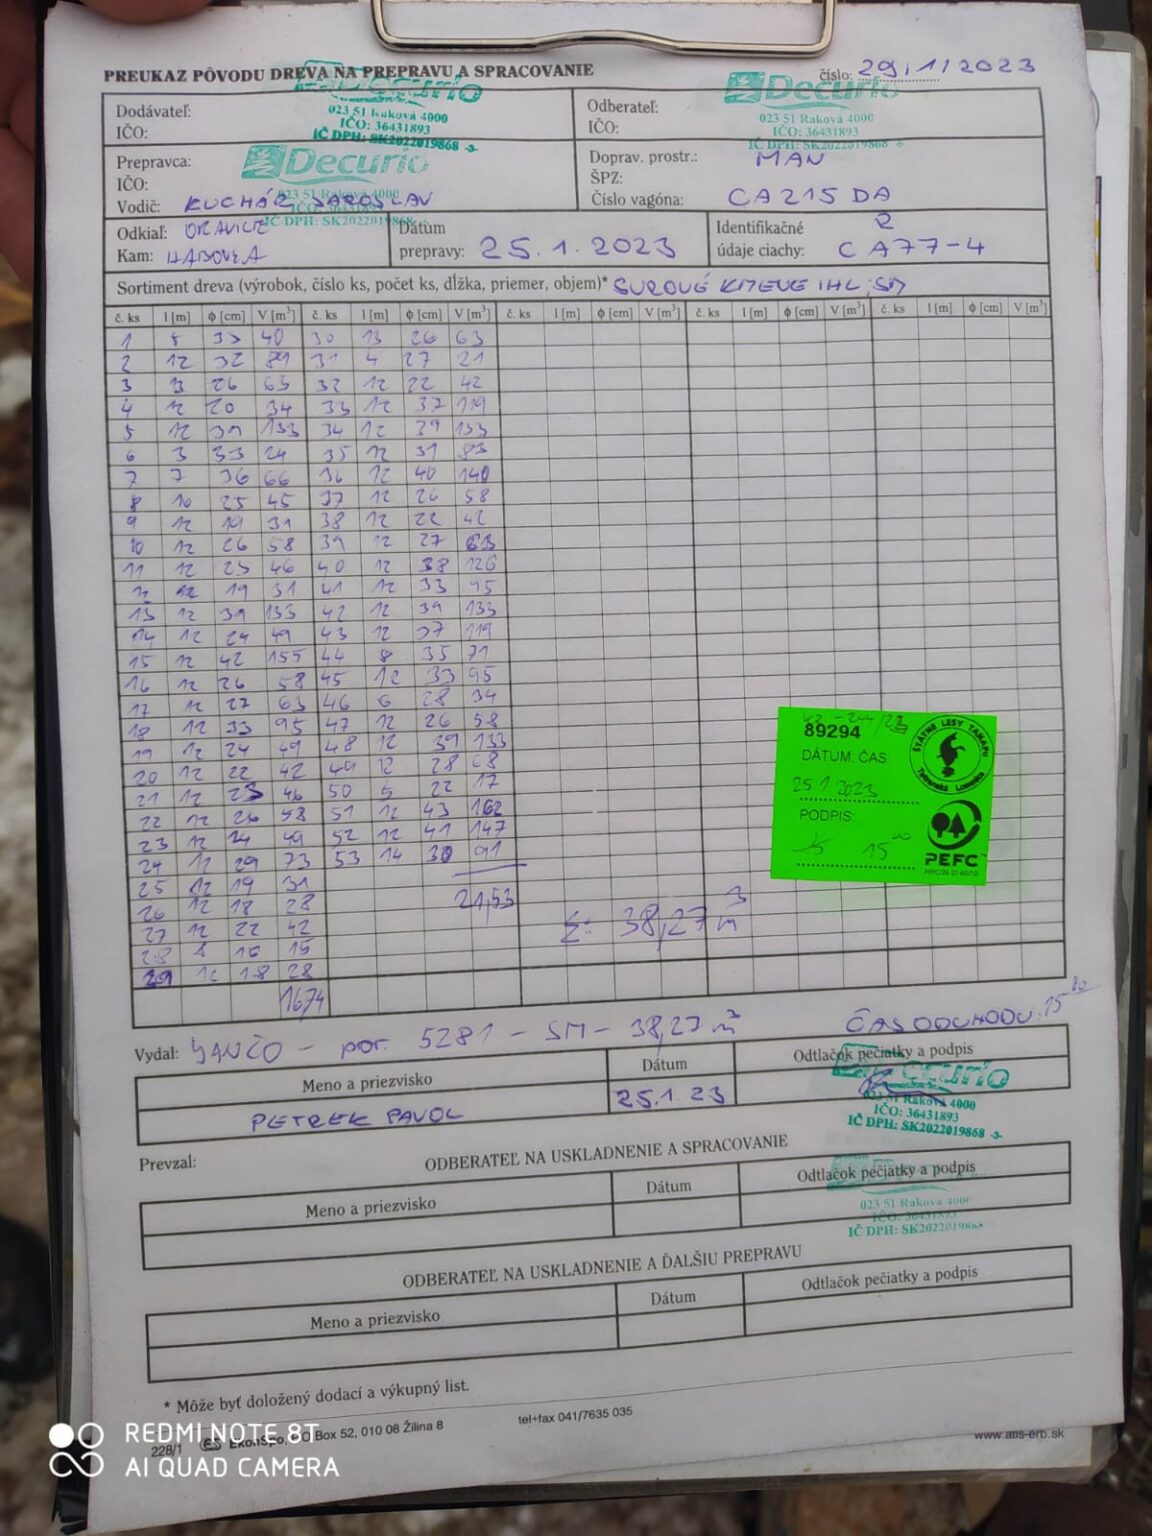 PREUKAZ PÔVODU DREVA NA PREPRAVU A SPRACOVANIE
číslo: 29/1/2023
Dodávateľ:
IČO:
Decurio
023 51 Raková 4000
IČO: 36431893
IČ DPH: SK2022019868 -3-
Odberateľ:
IČO:
Decurio
023 51 Raková 4000
IČO: 36431893
IČ DPH: SK2022019868
Prepravca:
IČO:
Vodič: KUCHÁR JAROSLAV
Decurio
023 51 Raková 4000
IČ DPH: SK2022019868
Doprav. prostr.: MAN
ŠPZ:
Číslo vagóna: CA215DA
Odkiaľ: ORAVICE
Kam:
Dátum
prepravy: 25.1.2023
Identifikačné
údaje ciachy: CA77-4
Sortiment dreva (výrobok, číslo ks, počet ks, dĺžka, priemer, objem)* SUROVÉ KMENE IHL: SM
č. ks l [m] ϕ [cm] V [m³] č. ks l [m] ϕ [cm] V [m³] č. ks l [m] ϕ [cm] V [m³] č. ks l [m] ϕ [cm] V [m³] č. ks l [m] ϕ [cm] V [m³]
1 40 30 13 26 63
2 12 32 31 4 27 21
3 13 26 63 32 12 22 42
4 12 20 34 33 12 37 119
5 12 39 133 34 12 39 133
6 3 33 24 35 12 31 83
7 7 36 66 36 12 40 140
8 10 25 45 37 12 26 58
9 12 19 31 38 12 22 42
10 12 26 58 39 12 27 63
11 12 23 46 40 12 38 126
12 12 19 31 41 12 33 95
13 12 39 133 42 12 39 133
14 12 24 49 43 12 37 119
15 12 42 155 44 8 35 71
16 12 26 58 45 12 33 95
17 12 27 63 46 6 28 34
18 12 33 95 47 12 26 58
19 12 24 49 48 12 39 133
20 12 22 42 49 12 28 68
21 12 23 46 50 5 22 17
22 12 26 58 51 12 43 162
23 12 24 49 52 12 41 147
24 12 29 73 53 14 30 91
25 12 19 31
26 12 18 28 21,53
27 12 22 42 Σ: 38,27 m³
28 8 16 15
29 12 18 28
16,74
89294
DÁTUM, ČAS:
25 1 2023
PODPIS:
15⁰⁰
ŠTÁTNE LESY TANAPU
Tatranská Lomnica
PEFC
Vydal: JANČO - por. 5281 - SM - 38,27 m³
ČAS ODCHODU:
Meno a priezvisko Dátum Odtlačok pečiatky a podpis
PETREK PAVOL 25.1.23
Decurio
023 51 Raková 4000
IČO: 36431893
IČ DPH: SK2022019868 -3-
Prevzal:
ODBERATEĽ NA USKLADNENIE A SPRACOVANIE
Meno a priezvisko Dátum Odtlačok pečiatky a podpis
023 51 Raková 4000
IČO: 36431893
IČ DPH: SK2022019868
ODBERATEĽ NA USKLADNENIE A ĎALŠIU PREPRAVU
Meno a priezvisko Dátum Odtlačok pečiatky a podpis
* Môže byť doložený dodací a výkupný list.
228/1 EkonSpo, P.O.Box 52, 010 08 Žilina 8 tel+fax 041/7635 035 www.atis-erb.sk
REDMI NOTE 8T
AI QUAD CAMERA